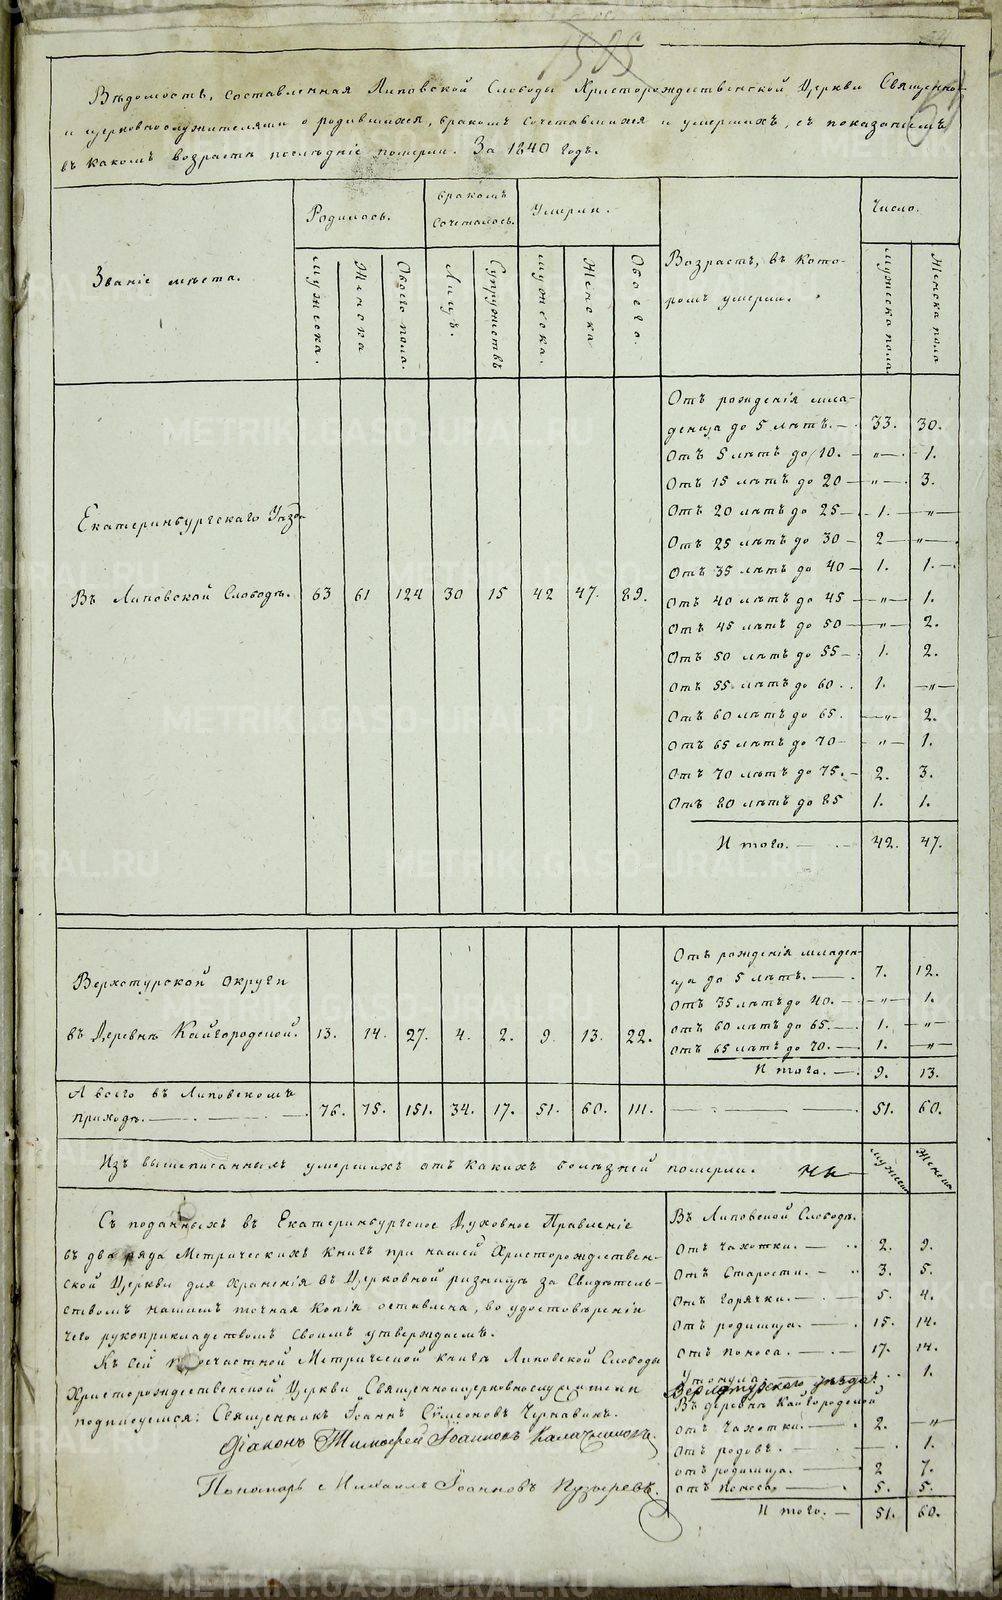 Вѣдомость, составленная Липовской Слободы Христорождественской Церкви Священно-
и церковнослужителями о родившихся, бракомъ сочетавшихся и умершихъ, съ показаніемъ
въ какомъ возрастѣ послѣдніе померли. За 1840 годъ.
Званіе мѣста.
Родилось.
бракомъ
сочеталось.
Умерли.
Возрастъ, въ кото-
ромъ умерли.
Число.
Мужеска.
Женска
Обоего пола.
Лицъ.
Супружествъ
Мужеска.
Женска
Обоего.
Мужеска пола
Женска пола
Екатеринбургскаго Уѣзда
Въ Липовской Слободѣ. 63 61 124 30 15 42 47. 89.
Отъ рожденія мла-
денца до 5 лѣтъ. — 33. 30.
Отъ 5 лѣтъ до 10. — „ — 1.
Отъ 15 лѣтъ до 20 — „ — 3.
Отъ 20 лѣтъ до 25 — 1. — „ —
Отъ 25 лѣтъ до 30 — 2 — „ —
Отъ 35 лѣтъ до 40 — 1. 1. —
Отъ 40 лѣтъ до 45 — „ — 1.
Отъ 45 лѣтъ до 50 — „ — 2.
Отъ 50 лѣтъ до 55 — 1. 2.
Отъ 55 лѣтъ до 60 . . 1. — „ —
Отъ 60 лѣтъ до 65. — „ — 2.
Отъ 65 лѣтъ до 70 — „ — 1.
Отъ 70 лѣтъ до 75. — 2. 3.
Отъ 80 лѣтъ до 85 1. 1.
Итого. — 42. 47.
Верхотурской округи
въ Деревнѣ Кайгородской. 13. 14. 27. 4. 2. 9. 13. 22.
Отъ рожденія младен-
ца до 5 лѣтъ. — 7. 12.
Отъ 35 лѣтъ до 40. — „ — 1.
Отъ 60 лѣтъ до 65. — 1. — „ —
Отъ 65 лѣтъ до 70. — 1. — „ —
Итого. — 9. 13.
А всего въ Липовскомъ
приходѣ. — 76. 75. 151. 34. 17. 51. 60. 111. — 51. 60.
Изъ вышеписанныхъ умершихъ отъ какихъ болѣзней померли.
Мужеска
Женска
Съ поданныхъ въ Екатеринбургское Духовное Правленіе
въ два ряда Метрическихъ Книгъ при нашей Христорождествен-
ской Церкви для храненія въ Церковной ризницѣ за Свидѣтель-
ствомъ нашимъ точная копія оставлена, во удостовѣреніи
чего рукоприкладствомъ своимъ утверждаемъ.
Къ сей трочастной Метрической книгѣ Липовской Слободы
Христорождественской Церкви Священноицерковнослужители
подписуемся: Священникъ Іоаннъ Сѵмеоновъ Чернавинъ.
Діаконъ Тимофей Іоанновъ Калачниковъ.
Пономарь Михаилъ Іоанновъ Пузыревъ.
Въ Липовской Слободѣ.
Отъ чахотки. — 2. 9.
Отъ Старости. — 3. 5.
Отъ горячки. — 5. 4.
Отъ родимца. — 15. 14.
Отъ поноса. — 17. 14.
Утонула . . 1.
Верхотурскаго уѣзда
Въ деревнѣ Кайгородской
Отъ чахотки. — 2. — „ —
Отъ родовъ. — 1.
отъ родимца. — 2 7.
отъ поноса. — 5. 5.
Итого. — 51. 60.
METRIKI.GASO-URAL.RU